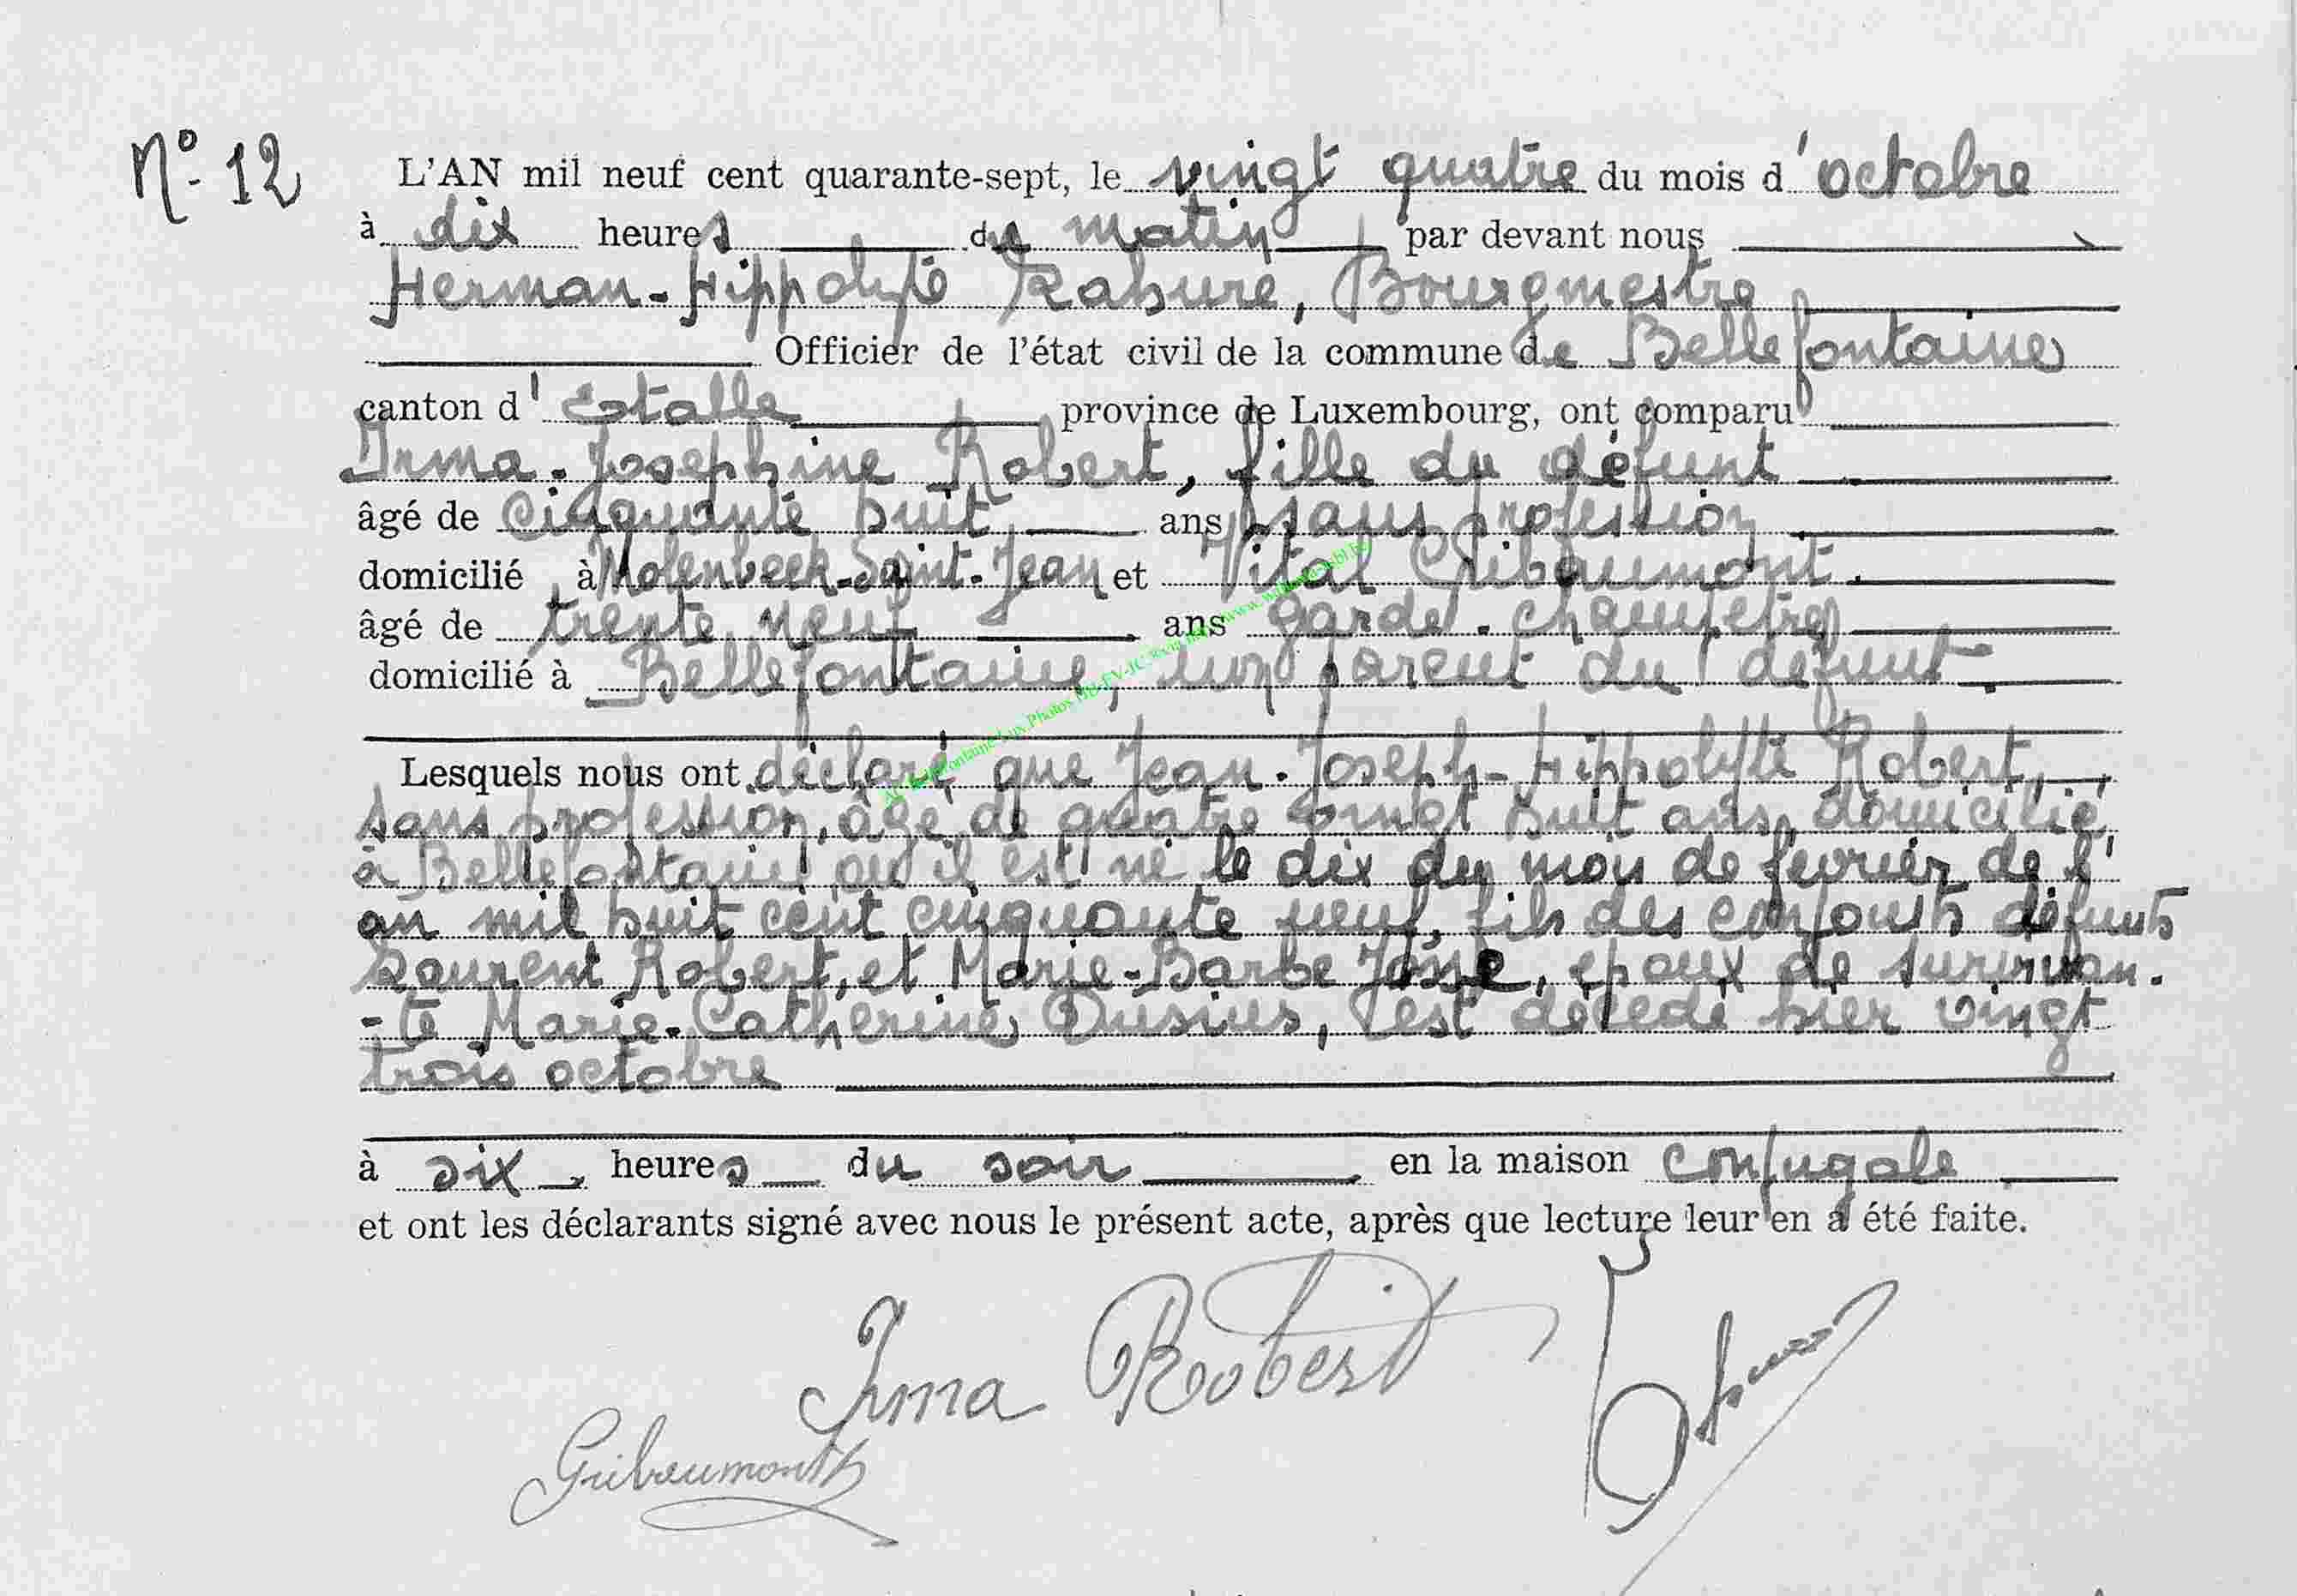 N° 12
L'AN mil neuf cent quarante-sept, le vingt quatre du mois d'octobre
à dix heures du matin par devant nous
Herman-Hippolyte Rahure, Bourgmestre
Officier de l'état civil de la commune de Bellefontaine
canton d'Etalle province de Luxembourg, ont comparu
Irma-Josephine Robert, fille du défunt
âgé de cinquante huit ans, sans profession
domicilié à Molenbeek-Saint-Jean et Vital Gribaumont.
âgé de trente neuf ans garde-champetre
domicilié à Bellefontaine, non parent du défunt.
Lesquels nous ont déclaré que Jean-Joseph-Hippolyte Robert,
sans profession, âgé de quatre vingt huit ans, domicilié
à Bellefontaine où il est né le dix du mois de fevrier de l'
an mil huit cent cinquante neuf, fils des conjoints défunts
Laurent Robert, et Marie-Barbe, epoux de survivan-
-te Marie-Catherine Dusius, est décédé hier vingt
trois octobre
à six heures du soir en la maison conjugale
et ont les déclarants signé avec nous le présent acte, après que lecture leur en a été faite.
Irma Robert
Gribaumont